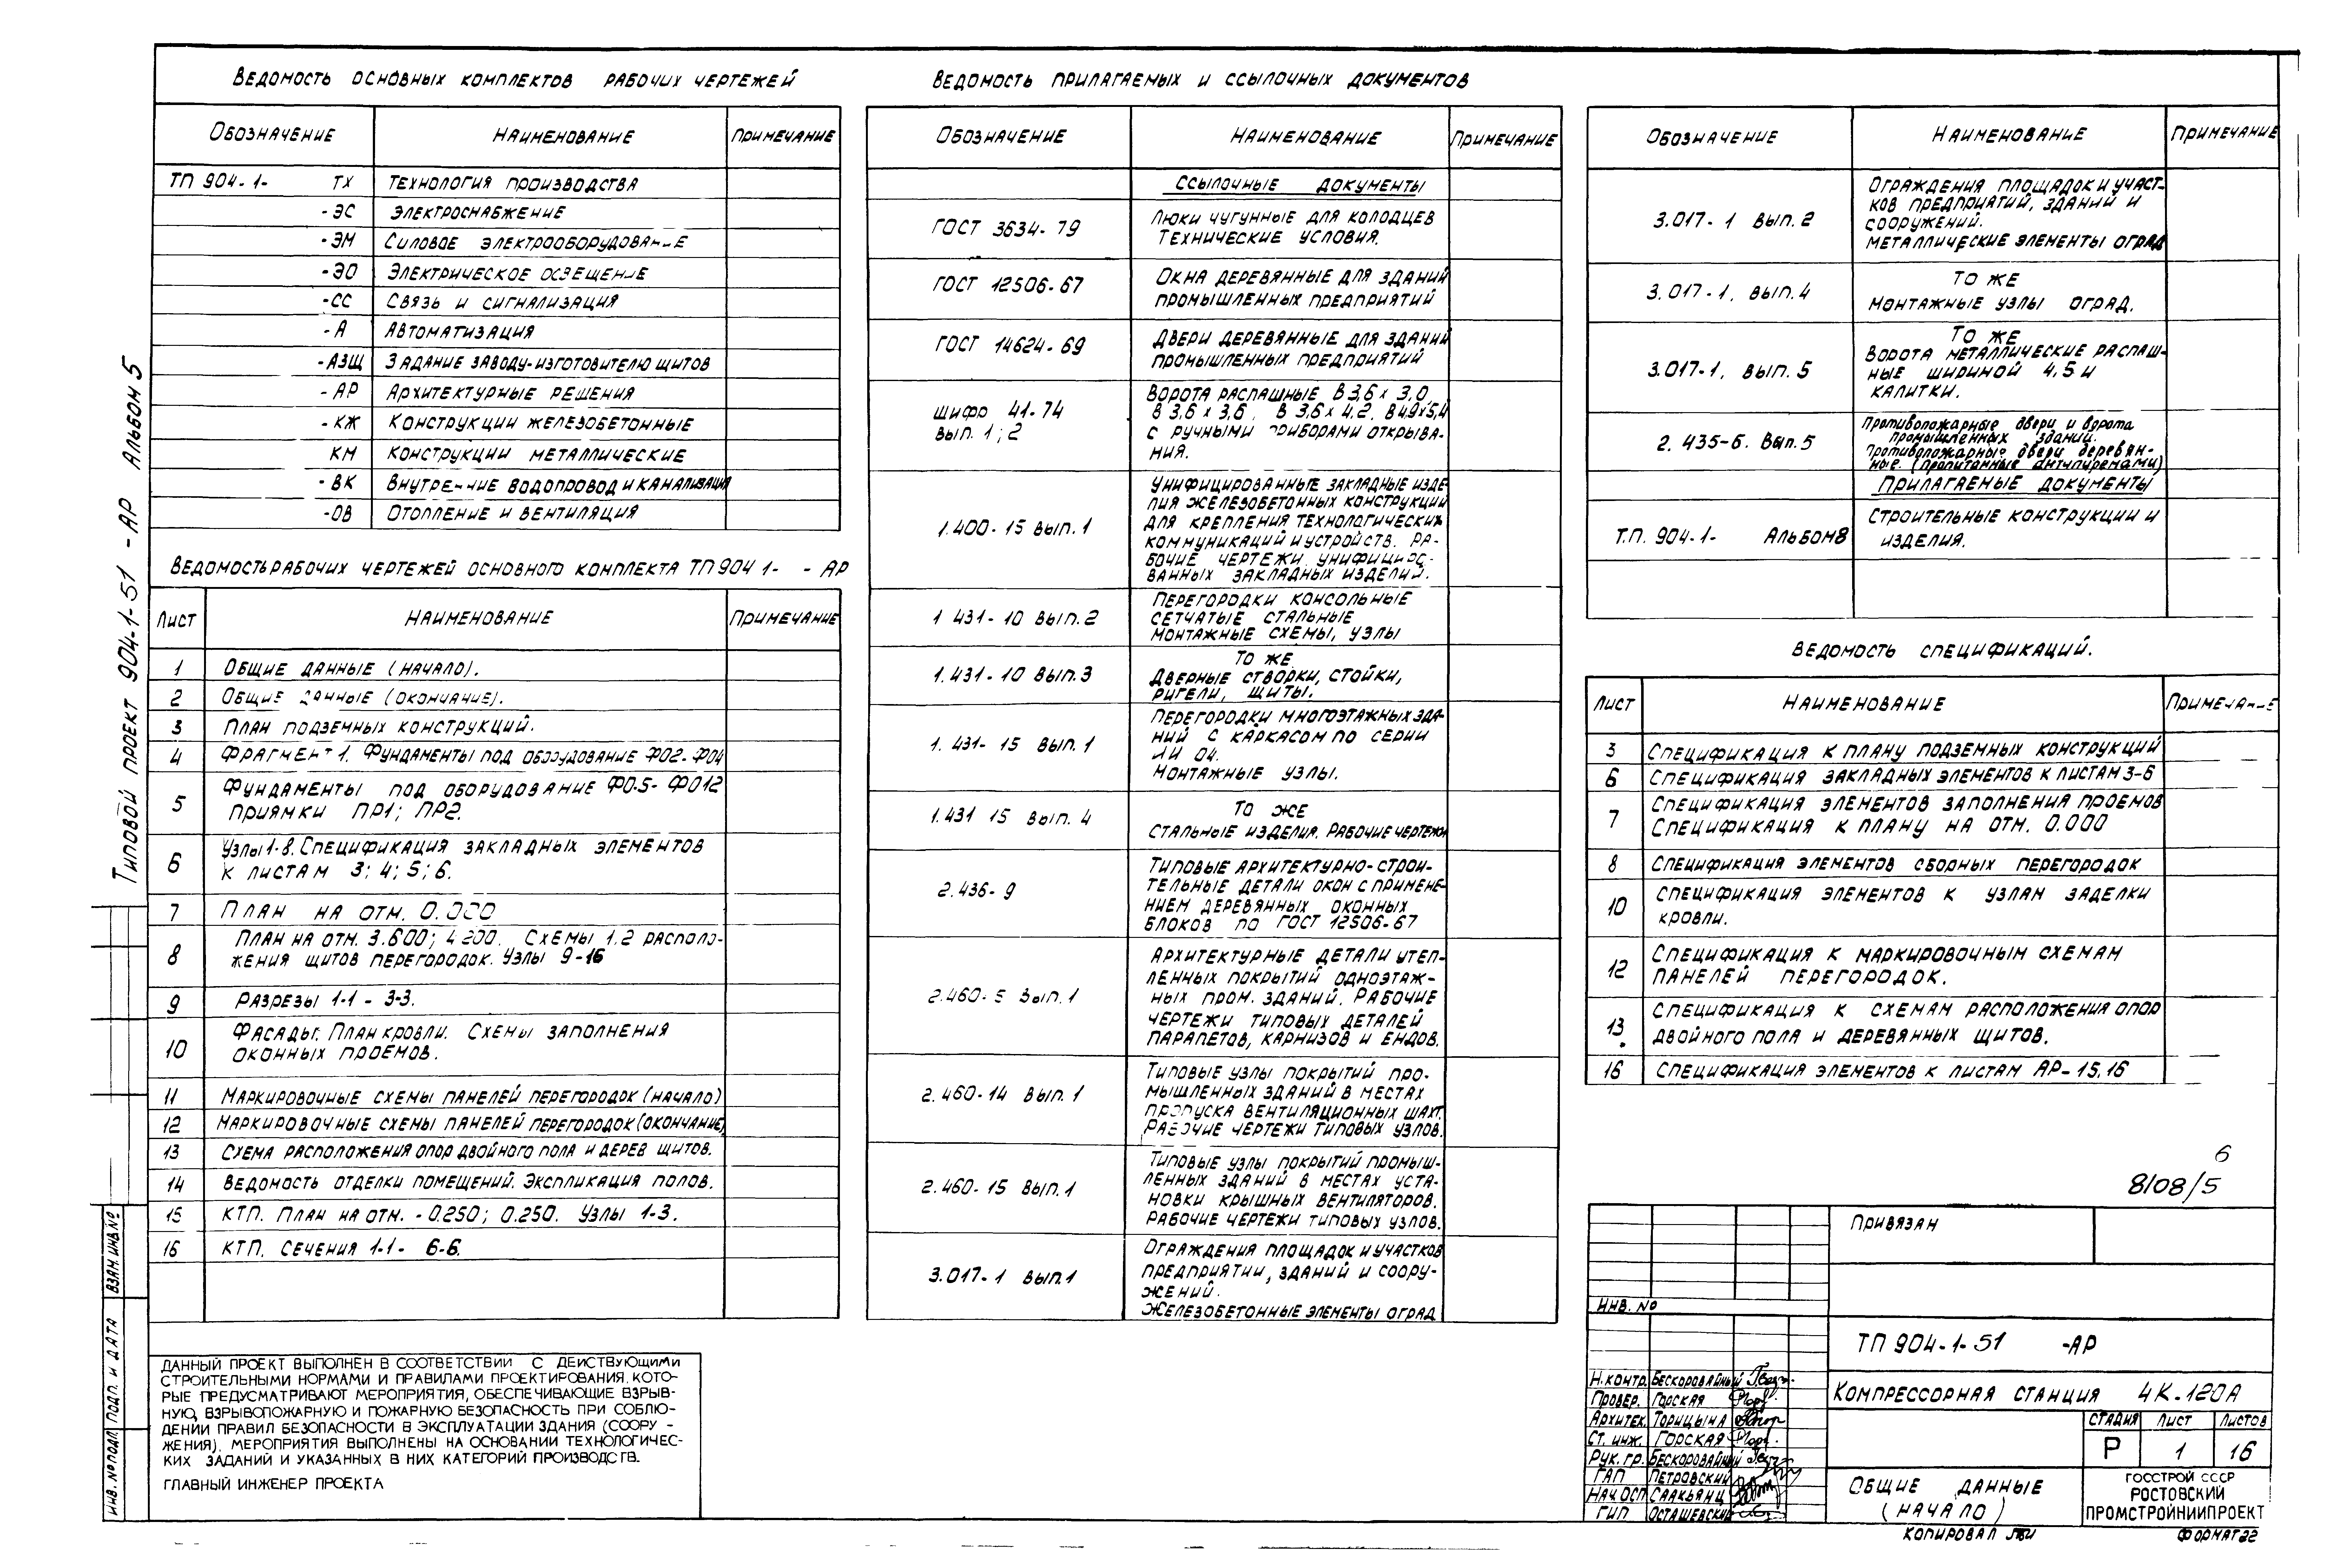 Типовой проект 904-1-51 -АР Альбом 5
Ведомость основных комплектов рабочих чертежей
Обозначение Наименование Примечание
ТП 904-1- ТХ Технология производства
-ЭС Электроснабжение
-ЭМ Силовое электрооборудование
-ЭО Электрическое освещение
-СС Связь и сигнализация
-А Автоматизация
-АЗЩ Задание заводу-изготовителю щитов
-АР Архитектурные решения
-КЖ Конструкции железобетонные
КМ Конструкции металлические
-ВК Внутренние водопровод и канализация
-ОВ Отопление и вентиляция
Ведомость рабочих чертежей основного комплекта ТП 904 1- - АР
Лист Наименование Примечание
1 Общие данные (начало).
2 Общие данные (окончание).
3 План подземных конструкций.
4 Фрагмент 1. Фундаменты под оборудование Ф02-Ф04
5 Фундаменты под оборудование Ф0.5- Ф012
Приямки ПР1; ПР2.
6 Узлы 1-8. Спецификация закладных элементов
к листам 3; 4; 5; 6.
7 План на отм. 0.000
8 План на отм. 3.600; 4 200. Схемы 1.2 располо-
жения щитов перегородок. Узлы 9-16
9 Разрезы 1-1 - 3-3.
10 Фасады. План кровли. Схемы заполнения
оконных проемов.
11 Маркировочные схемы панелей перегородок (начало)
12 Маркировочные схемы панелей перегородок (окончание)
13 Схема расположения опор двойного пола и дерев щитов.
14 Ведомость отделки помещений. Экспликация полов.
15 КТП. План на отм. -0.250; 0.250. Узлы 1-3.
16 КТП. Сечения 1-1- 6-6.
Данный проект выполнен в соответствии с действующими
строительными нормами и правилами проектирования, кото-
рые предусматривают мероприятия, обеспечивающие взрыв-
ную, взрывопожарную и пожарную безопасность при соблю-
дении правил безопасности в эксплуатации здания (соору -
жения). Мероприятия выполнены на основании технологичес-
ких заданий и указанных в них категорий производств.
Главный инженер проекта
Ведомость прилагаемых и ссылочных документов
Обозначение Наименование Примечание
Ссылочные документы
ГОСТ 3634-79 Люки чугунные для колодцев
Технические условия.
ГОСТ 12506-67 Окна деревянные для зданий
промышленных предприятий
ГОСТ 14624-69 Двери деревянные для зданий
промышленных предприятий
шифр 41-74
вып. 1; 2
Ворота распашные В 3,6 х 3,0,
В 3,6 х 3,6, В 3,6 х 4,2, В 4,9х5,4
с ручными приборами открыва-
ния.
1.400-15 вып. 1
Унифицированные закладные изде-
лия железобетонных конструкций
для крепления технологических
коммуникаций и устройств. Ра-
бочие чертежи унифициро-
ванных закладных изделий.
1 431-10 вып. 2
Перегородки консольные
сетчатые стальные
монтажные схемы, узлы
1.431-10 вып.3
То же
Дверные створки, стойки,
ригели, щиты.
1. 431-15 вып. 1
Перегородки многоэтажных зда-
ний с каркасом по серии
ИИ 04.
Монтажные узлы.
1.431 15 вып. 4
То же
Стальные изделия. Рабочие чертежи
2.436-9
Типовые архитектурно-строи-
тельные детали окон с примене-
нием деревянных оконных
блоков по ГОСТ 12506-67
2.460-5 вып.1
Архитектурные детали утеп-
ленных покрытий одноэтаж-
ных пром. зданий. Рабочие
чертежи типовых деталей
парапетов, карнизов и ендов.
2.460-14 вып.1
Типовые узлы покрытий про-
мышленных зданий в местах
пропуска вентиляционных шахт.
Рабочие чертежи типовых узлов.
2.460-15 вып.1
Типовые узлы покрытий промыш-
ленных зданий в местах уста-
новки крышных вентиляторов.
Рабочие чертежи типовых узлов.
3.017-1 вып.1
Ограждения площадок и участков
предприятии, зданий и соору-
жений.
Железобетонные элементы оград
Обозначение Наименование Примечание
3.017-1 вып.2
Ограждения площадок и участ-
ков предприятий, зданий и
сооружений.
Металлические элементы оград
3.017-1, вып.4
То же
Монтажные узлы оград.
3.017-1, вып. 5
То же
Ворота металлические распаш-
ные шириной 4,5 и
калитки.
2. 435-6. вып.5
Противопожарные двери и ворота
промышленных зданий.
Противопожарные двери деревян-
ные. (пропитанные антипиренами)
Прилагаемые документы
Т.П. 904-1- Альбом 8
Строительные конструкции и
изделия.
Ведомость спецификаций.
Лист Наименование Примечание
3 Спецификация к плану подземных конструкций
6 Спецификация закладных элементов к листам 3-6
7 Спецификация элементов заполнения проемов
Спецификация к плану на отм. 0.000
8 Спецификация элементов сборных перегородок
10 Спецификация элементов к узлам заделки
кровли.
12 Спецификация к маркировочным схемам
панелей перегородок.
13 Спецификация к схемам расположения опор
двойного пола и деревянных щитов.
16 Спецификация элементов к листам АР-15,16
6
8108/5
Привязан
Инв. №
ТП 904-1-51 -АР
Компрессорная станция 4К-120А
Н.контр. Бескоровайный
Провер. Горская
Архитек. Торицына
Ст. инж. Горская
Рук. гр. Бескоровайный
ГАП Петровский
Нач.ОСП Саакьянц
ГИП Осташевский
Стадия Лист Листов
Р 1 16
Общие данные
(начало)
Госстрой СССР
Ростовский
Промстройниипроект
Копировал
Формат 22
Взам. инв. №
Подп. и дата
Инв. № подл.